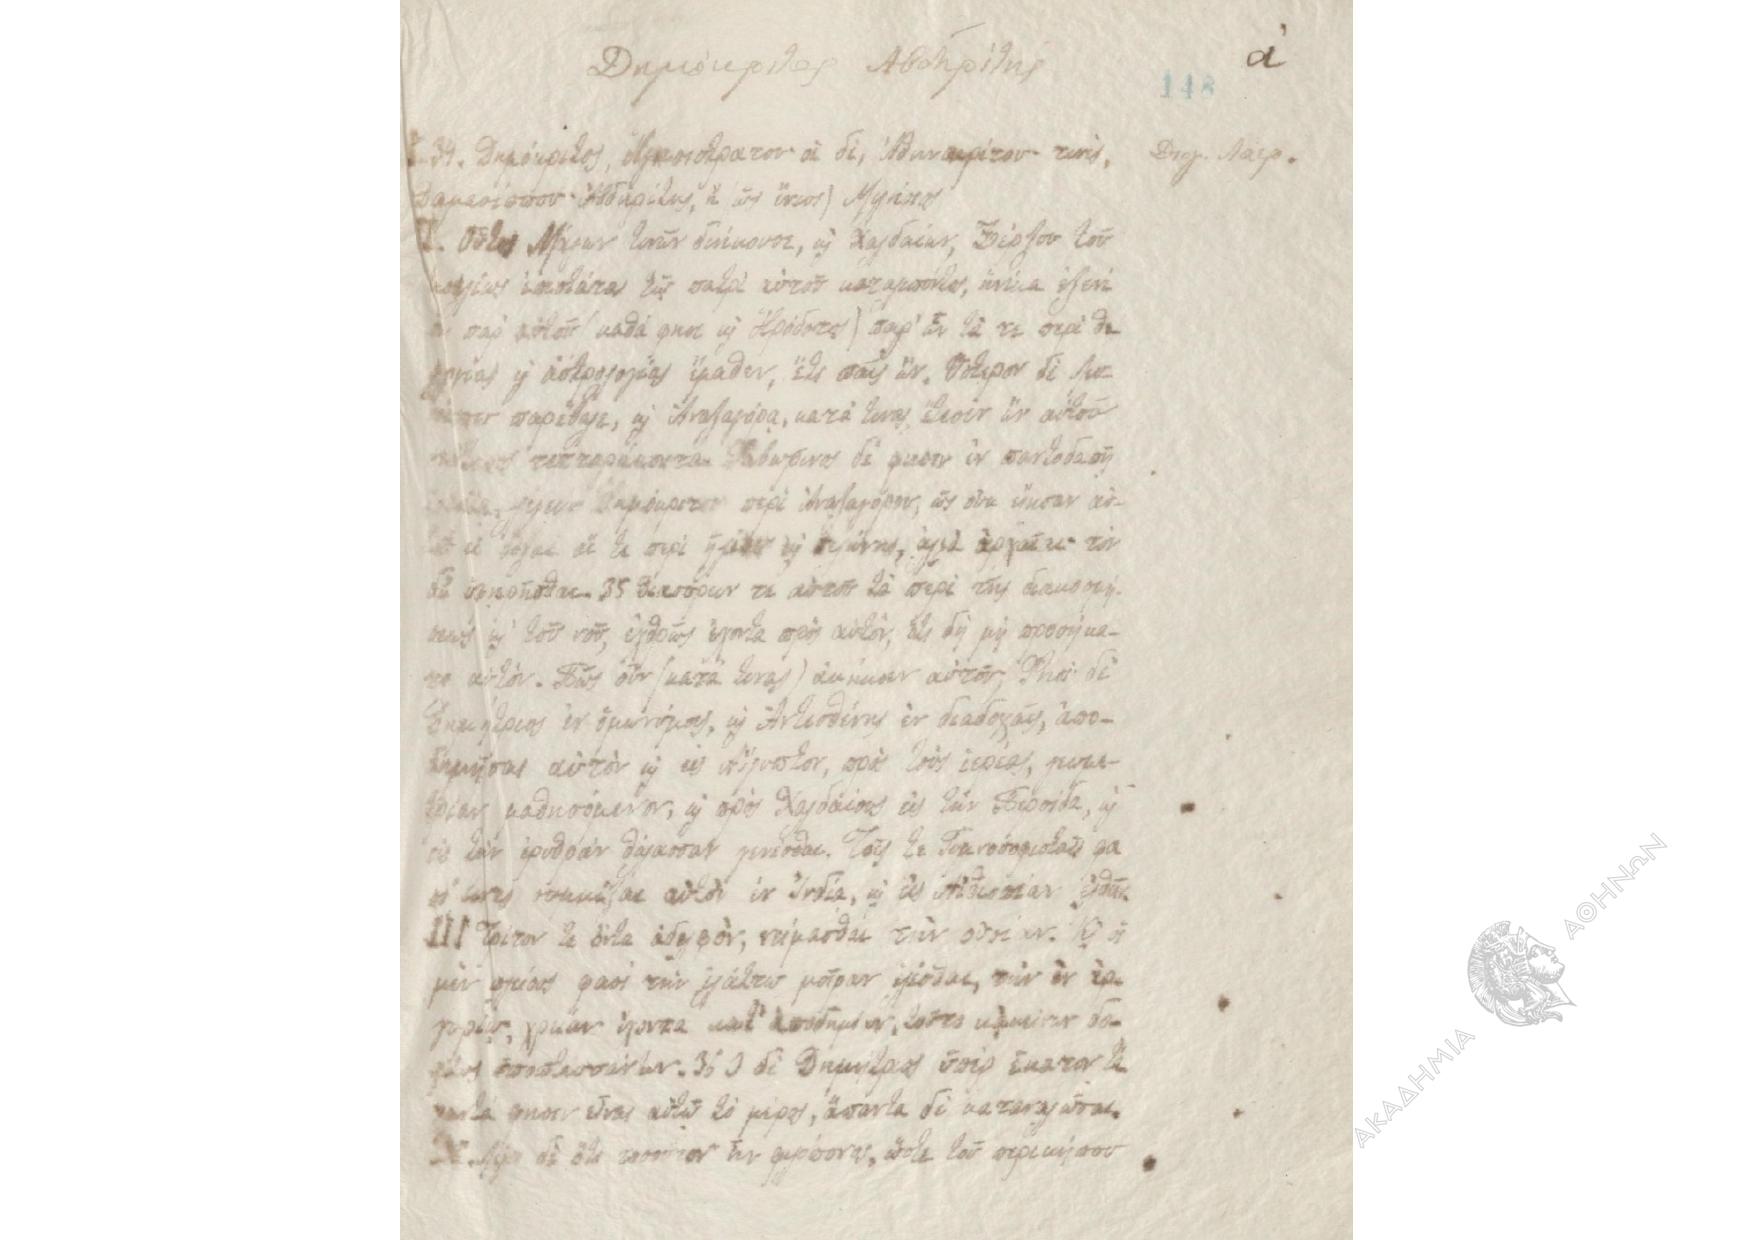 Δημόκριτος Αβδηρίτης
ά
148
I. 34. Δημόκριτος, Ἡγησιστράτου· οἱ δὲ, Ἀθηνοκρίτου· τινὲς, Διογ. Λαερ.
Δαμασίππου· Ἀβδηρίτης, ἢ (ὡς ἔνιοι) Μιλήσιος
II. Οὗτος Μάγων τινῶν διήκουσε, καὶ Χαλδαίων, Ξέρξου τοῦ
βασιλέως ἐπιστάτας τῷ πατρὶ αὐτοῦ καταλιπόντος, ἡνίκα ἐξενί
παρ' αὐτοῦ (καθά φησι καὶ Ἡρόδοτος) παρ' ὧν τά τε περὶ θε
ολογίας καὶ ἀστρολογίας ἔμαθεν, ἔτι παῖς ὤν. Ὕστερον δὲ Λευ-
κίππῳ παρέβαλε, καὶ Ἀναξαγόρᾳ, κατά τινας, ἔτεσιν ὢν αὐτοῦ
νεώτερος τετταράκοντα. Φαβωρῖνος δέ φησιν ἐν παντοδαπῇ
ἱστορίᾳ, λέγειν Δημόκριτον περὶ Ἀναξαγόρου, ὡς οὐκ εἴησαν αὐ-
τοῦ αἱ δόξαι αἵ τε περὶ ἡλίου καὶ σελήνης, ἀλλὰ ἀρχαῖαι· τὸν
δὲ ὑφῃρῆσθαι. 35 διασύρειν τε αὐτοῦ τὰ περὶ τῆς διακοσμή-
σεως καὶ τοῦ νοῦ, ἐχθρῶς ἔχοντα πρὸς αὐτὸν, ὅτι δὴ μὴ προσήκα-
το αὐτόν. Πῶς οὖν (κατά τινας) ἀκήκοεν αὐτοῦ; Φησὶ δὲ
Δημήτριος ἐν ὁμωνύμοις, καὶ Ἀντισθένης ἐν διαδοχαῖς, ἀπο-
δημῆσαι αὐτὸν καὶ εἰς Αἴγυπτον, πρὸς τοὺς ἱερέας, γεωμε-
τρίαν μαθησόμενον, καὶ πρὸς Χαλδαίους εἰς τὴν Περσίδα, καὶ
εἰς τὴν ἐρυθρὰν θάλασσαν γενέσθαι. Τοῖς τε Γυμνοσοφισταῖς φα
σί τινες συμμίξαι αὐτὸν ἐν Ἰνδίᾳ, καὶ εἰς Αἰθιοπίαν ἐλθεῖν.
III Τρίτον τε ὄντα ἀδελφὸν, νείμασθαι τὴν οὐσίαν. Καὶ οἱ
μὲν πλείους φασὶ τὴν ἐλάττω μοῖραν ἑλέσθαι, τὴν ἐν ἀρ-
γυρίῳ, χρείαν ἔχοντα κατ' ἀποδημίαν, τοῦτο κἀκείνων δο-
λίως ὑποπτευσάντων. 36 Ὁ δὲ Δημήτριος ὑπὲρ ἑκατὸν τά
λαντά φησιν εἶναι αὐτῷ τὸ μέρος, ἅπαντα δὲ καταναλῶσαι.
Λέγει δὲ ὅτι τοσοῦτον ἦν φιλόπονος, ὥστε τοῦ περικήπου
ΑΚΑΔΗΜΙΑ ΑΘΗΝΩΝ